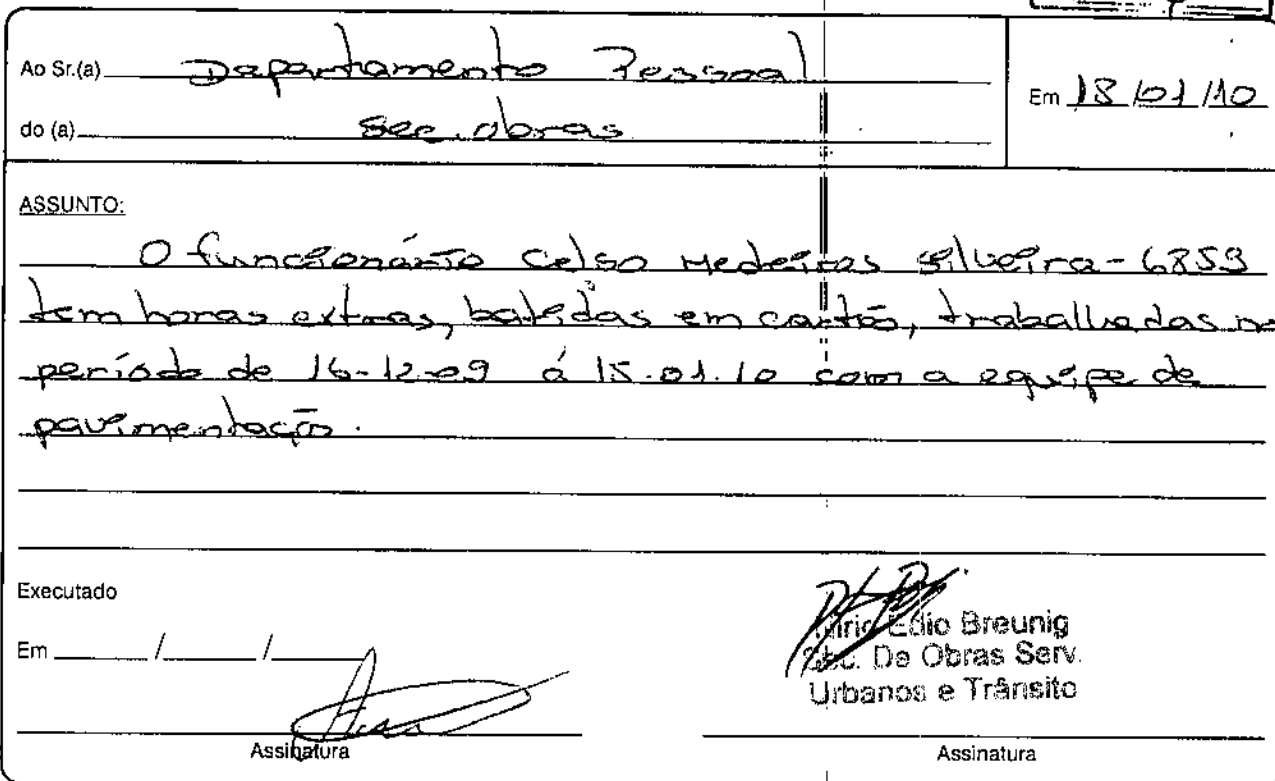 Ao Sr.(a) Departamento Pessoal
do (a) Sec. obras
Em 18/01/10
ASSUNTO:
O funcionário Celso Medeiros Silveira - 6859
tem horas extras, batidas em cartão, trabalhadas no
período de 16-12-09 á 15.01.10 com a equipe de
pavimentação.
Executado
Em / /
Assinatura
Edio Breunig
Sec. De Obras Serv.
Urbanos e Trânsito
Assinatura